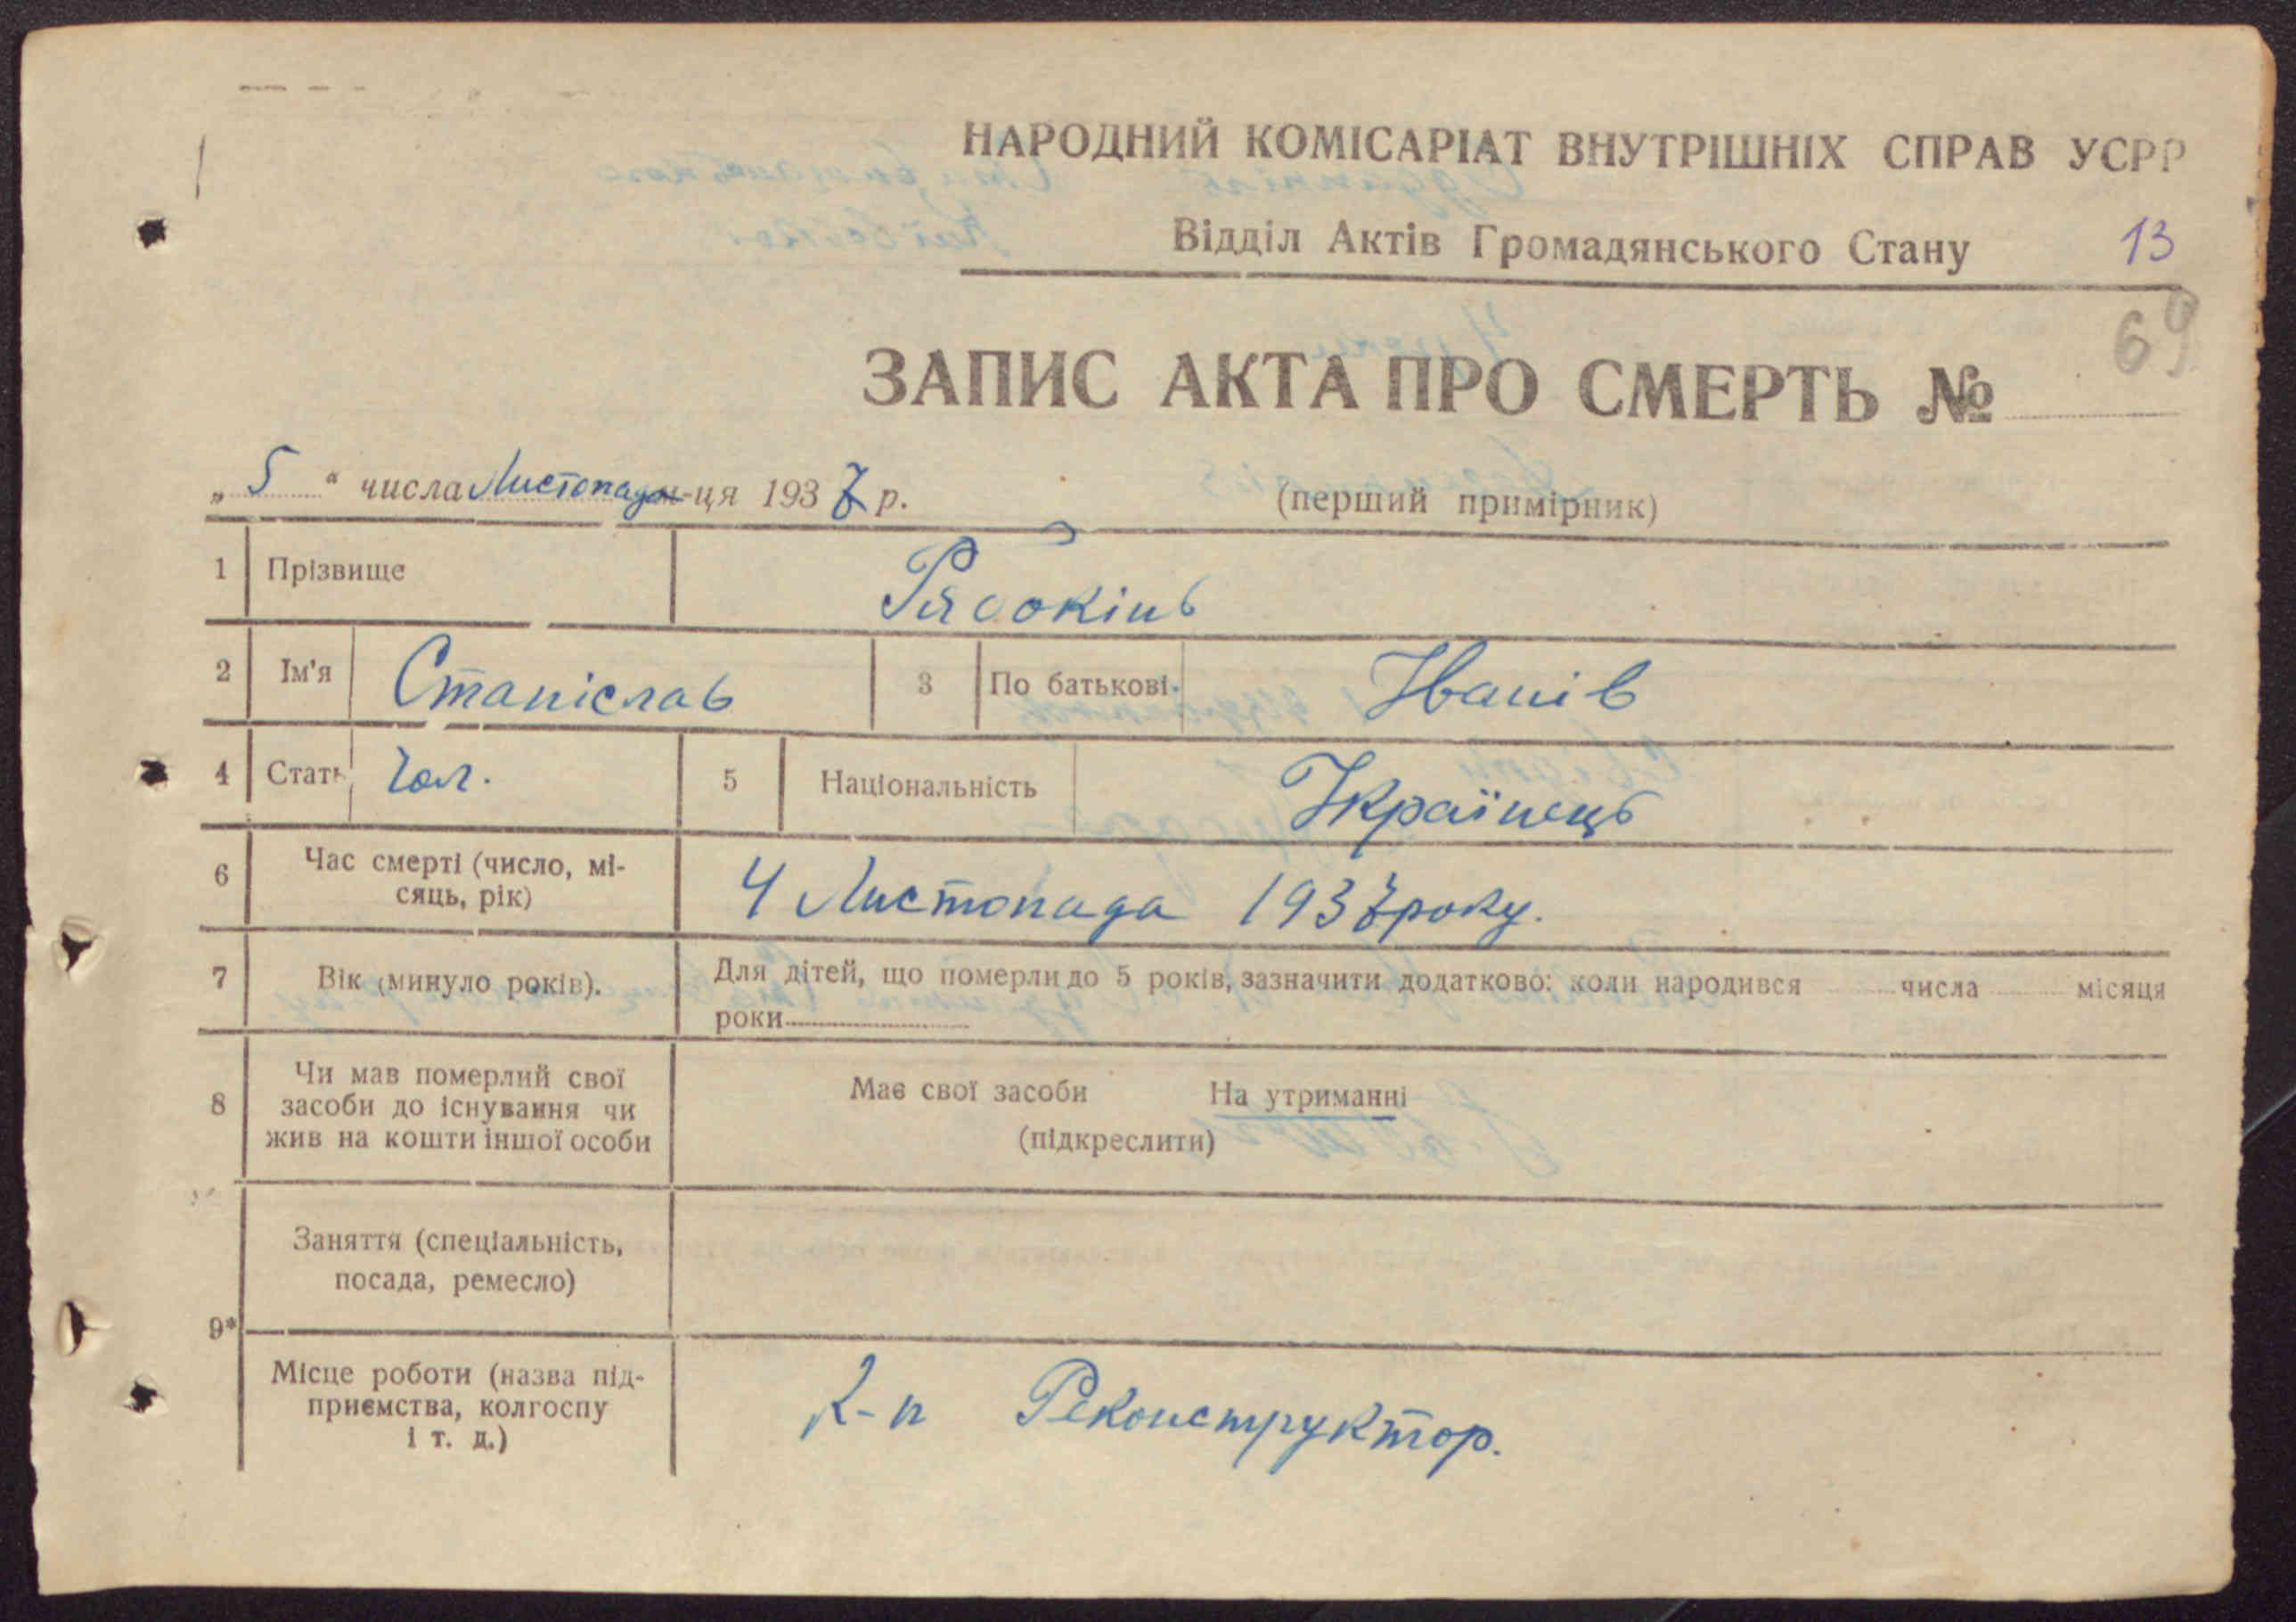 НАРОДНИЙ КОМІСАРІАТ ВНУТРІШНІХ СПРАВ УСРР
Відділ Актів Громадянського Стану 13
69
ЗАПИС АКТА ПРО СМЕРТЬ №
„ 5 “ числа Листопада м-ця 1937 р.
(перший примірник)
1 Прізвище Рябокінь
2 Ім'я Станіслав 3 По батькові Іванів
4 Стать Чол. 5 Національність Українець
6 Час смерті (число, мі-
сяць, рік) 4 Листопада 1937 року.
7 Вік (минуло років). Для дітей, що померли до 5 років, зазначити додатково: коли народився числа місяця
роки
8 Чи мав померлий свої
засоби до існування чи
жив на кошти іншої особи
Має свої засоби На утриманні
(підкреслити)
9* Заняття (спеціальність,
посада, ремесло)
Місце роботи (назва під-
приємства, колгоспу
і т. д.)
К-п Реконструктор.